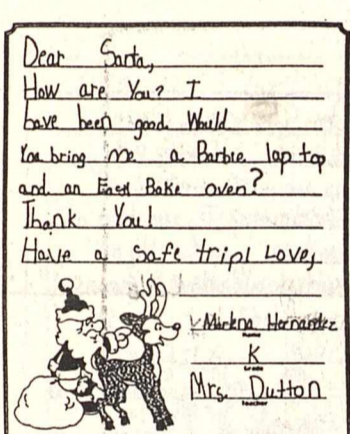 Dear Santa,
How are You? I
have been good. Would
You bring me a Barbie lap top
and an Easy Bake oven?
Thank You!
Have a safe trip! Love,
Marlena Hernandez
Name
K
Grade
Mrs. Dutton
teacher